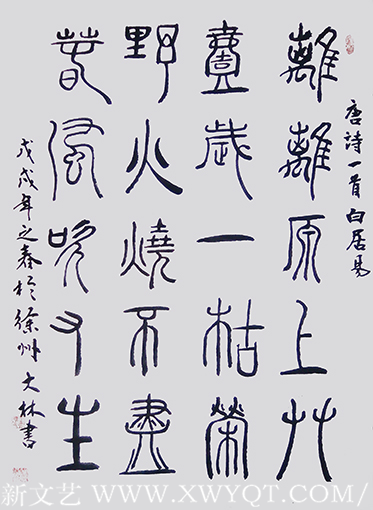 唐詩一首 白居易
離離原上艸
壹歲一枯榮
野火燒不盡
春風吹又生
戊戌年之春於徐州 大林書
新文艺 WWW.XWYQT.COM/